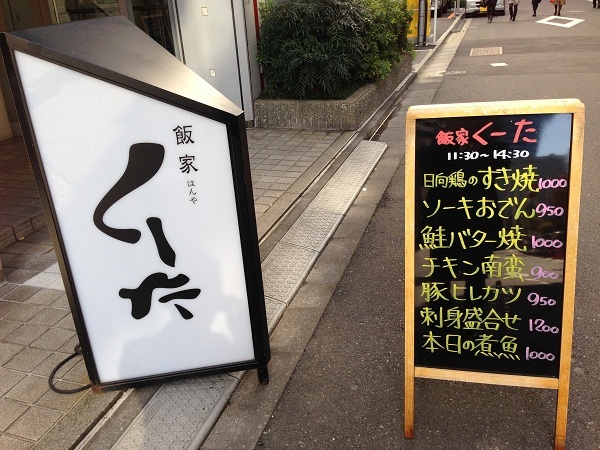 飯家
はんや
くーた
飯家 くーた
11:30～14:30
日向鶏のすき焼 1000
ソーキおでん 950
鮭バター焼 1000
チキン南蛮 900
豚ヒレカツ 950
刺身盛合せ 1200
本日の煮魚 1000